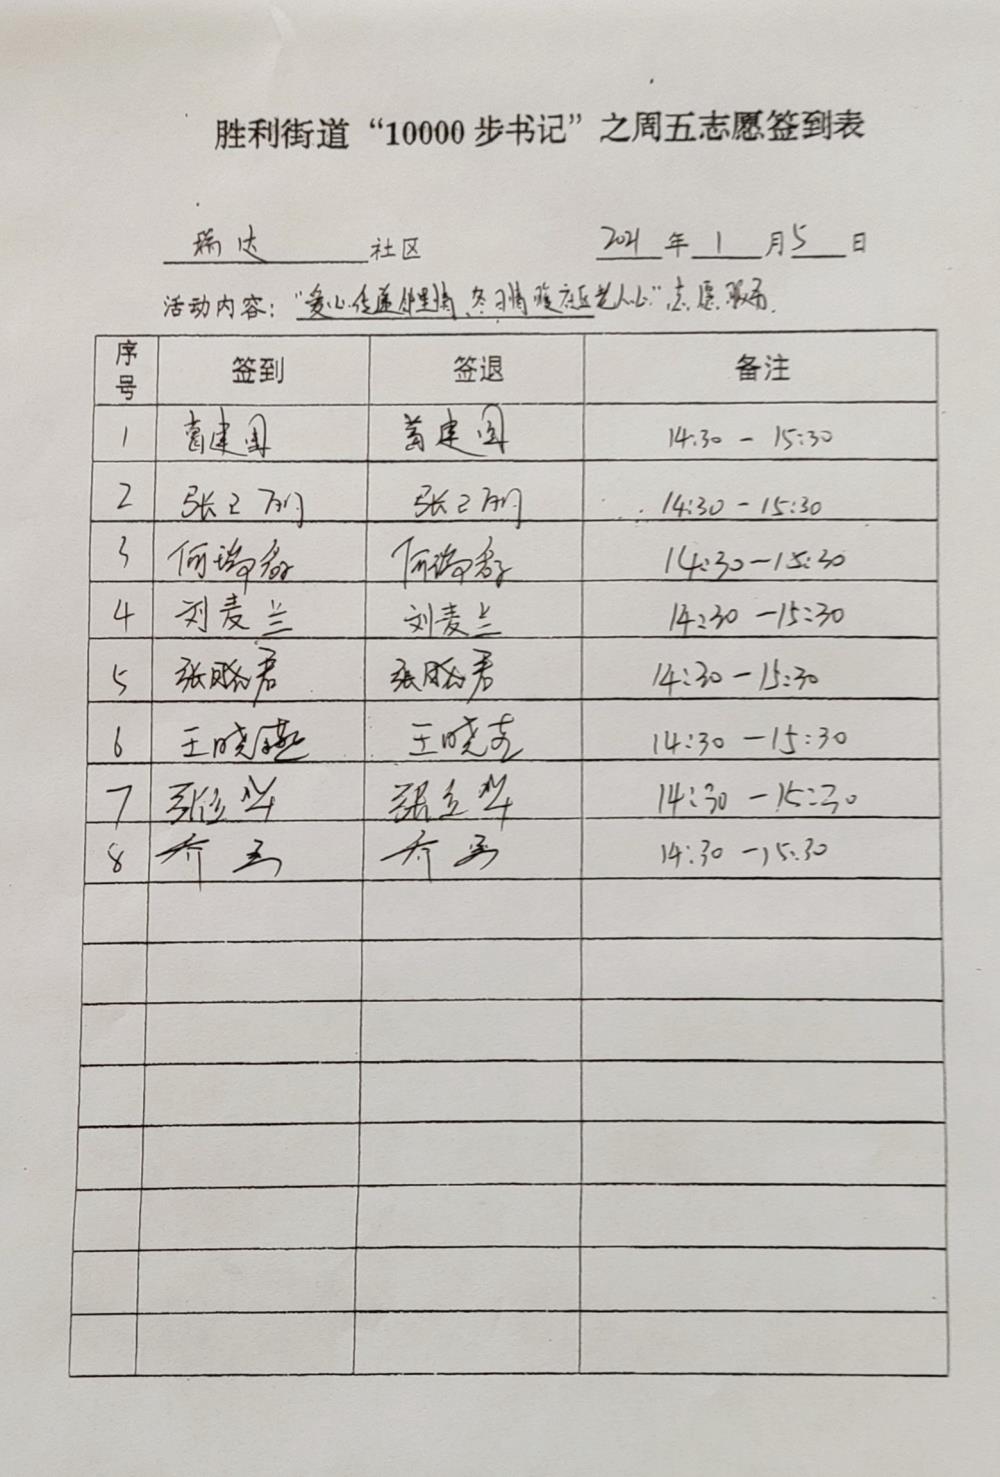 胜利街道“10000步书记”之周五志愿签到表
瑞达 社区 2021 年 1 月 5 日
活动内容：“爱心传递邻里情,冬日情暖社区老人心”志愿服务.
序号 签到 签退 备注
1 葛建国 葛建国 14:30 - 15:30
2 张 张 14:30 - 15:30
3 何瑞 何瑞 14:30 - 15:30
4 刘麦兰 刘麦兰 14:30 - 15:30
5 张晓君 张晓君 14:30 - 15:30
6 王晓燕 王晓 14:30 - 15:30
7 张立华 张立华 14:30 - 15:30
8 乔 乔 14:30 - 15:30